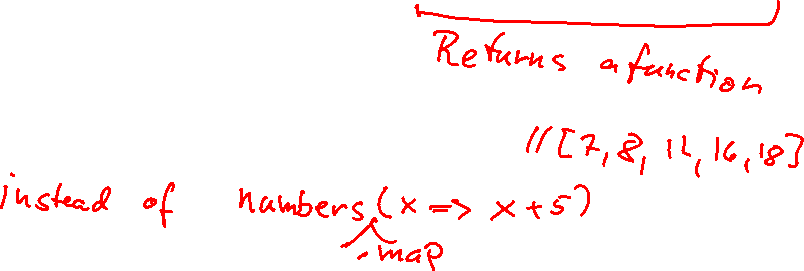 Returns a function
//[7, 8, 12, 16, 18]
instead of numbers(x => x+5)
.map